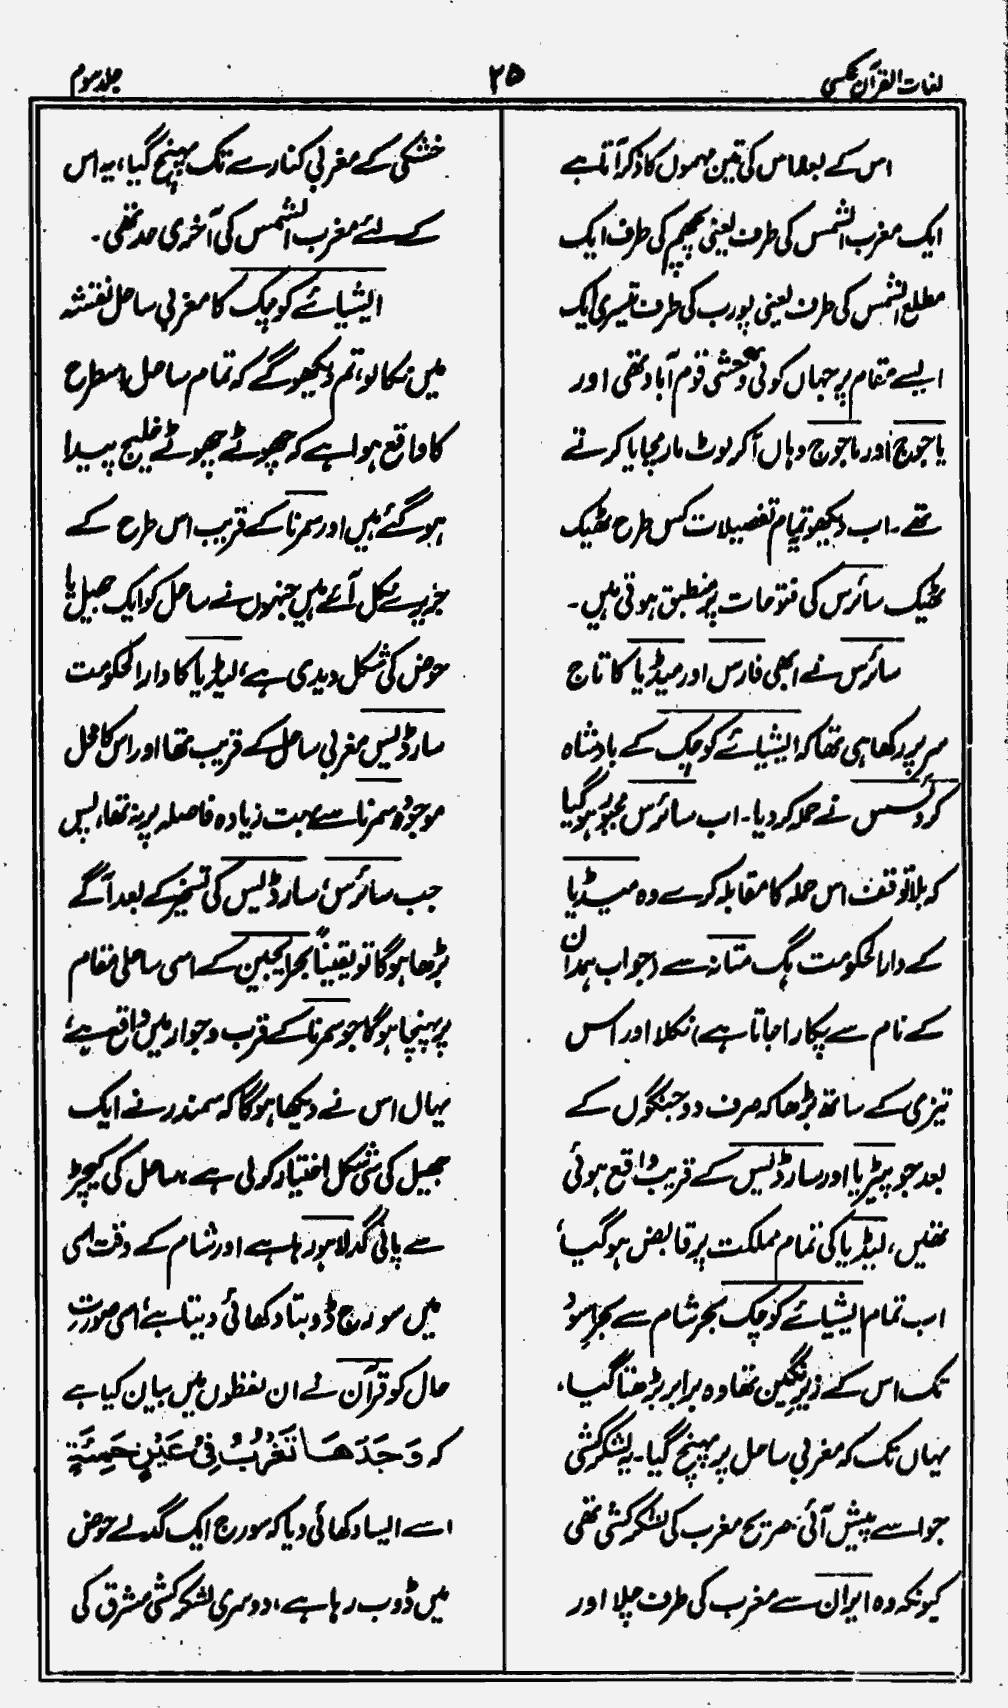 لغات القرآن عکسی
۲۵
جلد سوم
اس کے بعد اس کی تین مہموں کا ذکر آتا ہے
ایک مغرب الشمس کی طرف یعنی پچھم کی طرف ایک
مطلع الشمس کی طرف یعنی پورب کی طرف تیسری ایک
ایسے مقام پر جہاں کوئی وحشی قوم آباد تھی اور
یاجوج اور ماجوج وہاں آکر لوٹ مار مچایا کرتے
تھے۔ اب دیکھو تمام تفصیلات کس طرح ٹھیک
ٹھیک سائرس کی فتوحات پر منطبق ہوتی ہیں۔
سائرس نے ابھی فارس اور میڈیا کا تاج
سر پر رکھا ہی تھا کہ ایشیائے کوچک کے بادشاہ
کروئسس نے حملہ کردیا۔ اب سائرس مجبور ہوگیا
کہ بلا توقف اس حملہ کا مقابلہ کرے وہ میڈیا
کے دارالحکومت ہگ متانہ سے (جو اب ہمدان
کے نام سے پکارا جاتا ہے) نکلا اور اس
تیزی کے ساتھ بڑھا کہ صرف دو جنگوں کے
بعد جو پیٹریا اور سارڈیس کے قریب واقع ہوئی
تھیں، لیڈیا کی تمام مملکت پر قابض ہوگیا،
اب تمام ایشیائے کوچک بحر شام سے بحر اسود
تک اس کے زیر نگین تھا وہ برابر بڑھتا گیا،
یہاں تک کہ مغربی ساحل پر پہنچ گیا۔ یہ لشکر کشی
جو اسے پیش آئی صریح مغرب کی لشکر کشی تھی
کیونکہ وہ ایران سے مغرب کی طرف چلا اور
خشکی کے مغربی کنارے تک پہنچ گیا، یہ اس
کے لئے مغرب الشمس کی آخری حد تھی۔
ایشیائے کوچک کا مغربی ساحل نقشہ
میں نکالو، تم دیکھو گے کہ تمام ساحل اسطرح
کا واقع ہوا ہے کہ چھوٹے چھوٹے خلیج پیدا
ہوگئے ہیں اور سمرنا کے قریب اس طرح کے
جزیرے نکل آئے ہیں جنہوں نے ساحل کو ایک جھیل یا
حوض کی شکل دیدی ہے، لیڈیا کا دارالحکومت
سارڈیس مغربی ساحل کے قریب تھا اور اس کا محل
موجودہ سمرنا سے بہت زیادہ فاصلہ پر نہ تھا، پس
جب سائرس، سارڈیس کی تسخیر کے بعد آگے
بڑھا ہوگا تو یقیناً بحر ایجین کے اسی ساحلی مقام
پر پہنچا ہوگا جو سمرنا کے قرب وجوار میں واقع ہے،
یہاں اس نے دیکھا ہوگا کہ سمندر نے ایک
جھیل کی سی شکل اختیار کرلی ہے، ساحل کی کیچڑ
سے پانی گدلا ہورہا ہے اور شام کے وقت اسی
میں سورج ڈوبتا دکھائی دیتا ہے، اسی صورت
حال کو قرآن نے ان لفظوں میں بیان کیا ہے
کہ وَجَدَهَا تَغْرُبُ فِیْ عَیْنٍ حَمِئَةٍ
اسے ایسا دکھائی دیا کہ سورج ایک گدلے حوض
میں ڈوب رہا ہے، دوسری لشکر کشی مشرق کی